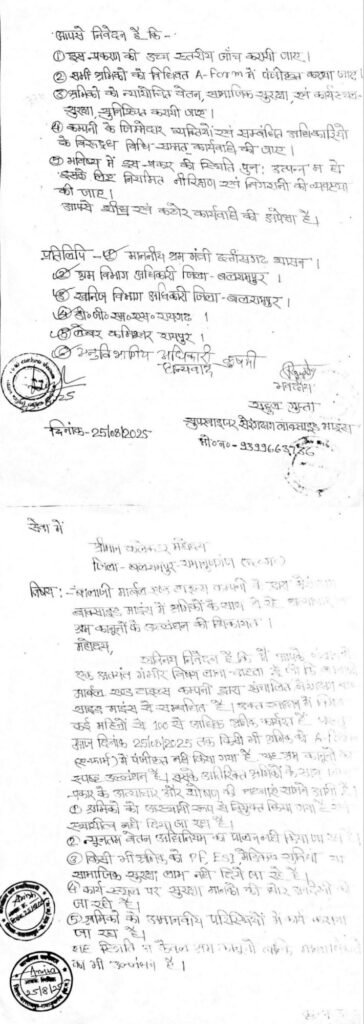 आपसे निवेदन है कि -
① इस प्रकरण की उच्च स्तरीय जाँच करायी जाए।
② सभी श्रमिकों को विधिवत A-Form में पंजीकृत कराया जाए।
③ श्रमिकों को न्यायोचित वेतन, सामाजिक सुरक्षा, एवं कार्यस्थल
सुरक्षा, सुनिश्चित करायी जाए।
④ कम्पनी के जिम्मेदार व्यक्तियों एवं सम्बंधित अधिकारियों
के विरुद्ध विधि-सम्मत कार्यवाही की जाए।
⑤ भविष्य में इस प्रकार की स्थिति पुनः उत्पन्न न हो
इसके लिए नियमित निरीक्षण एवं निगरानी की व्यवस्था
की जाए।
आपसे शीघ्र एवं कठोर कार्यवाही की अपेक्षा है।
प्रतिलिपि - ① माननीय श्रम मंत्री छत्तीसगढ़ शासन।
② श्रम विभाग अधिकारी जिला-बलरामपुर।
③ खनिज विभाग अधिकारी जिला-बलरामपुर।
④ डी०जी०एम०एस० रायगढ़।
⑤ लेबर कमिश्नर रायपुर।
⑥ अधिकारी कुसमी
धन्यवाद
भवदीय
राहुल गुप्ता
सुपरवाइजर बाक्साइड माइंस
मो०न०- 9399663786
दिनांक-25/08/2025
सेवा में
श्रीमान कलेक्टर महोदय
जिला-बलरामपुर-रामानुजगंज
विषय:- बालाजी मार्बल एण्ड टाइल्स कम्पनी के द्वारा
बाक्साइड माइंस में श्रमिकों के साथ हो रहे अत्याचार
श्रम कानूनों के उल्लंघन की शिकायत।
महोदय,
सविनय निवेदन है कि मैं आपके
एक अत्यंत गंभीर विषय लाना चाहता हूँ जो कि
मार्बल एण्ड टाइल्स कम्पनी द्वारा संचालित
साइड माइंस से सम्बन्धित है। उक्त खदान में
कई महिनों से 100 से अधिक श्रमिक कार्यरत हैं।
आज दिनांक 25/08/2025 तक किसी भी श्रमिक को A-
(ए-फार्म) में पंजीकृत नहीं किया गया है। यह श्रम कानूनों का
स्पष्ट उल्लंघन है। इसके अतिरिक्त श्रमिकों के साथ
प्रकार के अत्याचार और शोषण की घटनाएं सामने आयी हैं।
① श्रमिकों को अस्थायी रूप से नियुक्त किया गया है
स्थायीत्व नहीं दिया जा रहा है।
② न्यूनतम वेतन अधिनियम का पालन नहीं किया जा रहा है।
③ किसी भी श्रमिक को PF, ESI मेडिकल सुविधा या
सामाजिक सुरक्षा लाभ नहीं दिये जा रहे है।
④ कार्य स्थल पर सुरक्षा मानकों की घोर अनदेखी की
जा रही है।
⑤ श्रमिकों को अमानवीय परिस्थितियों में कार्य कराया
जा रहा है।
यह स्थिति न केवल श्रम कानूनों बल्कि मानवाधिकारों
का भी उल्लंघन है।
25/8/2025